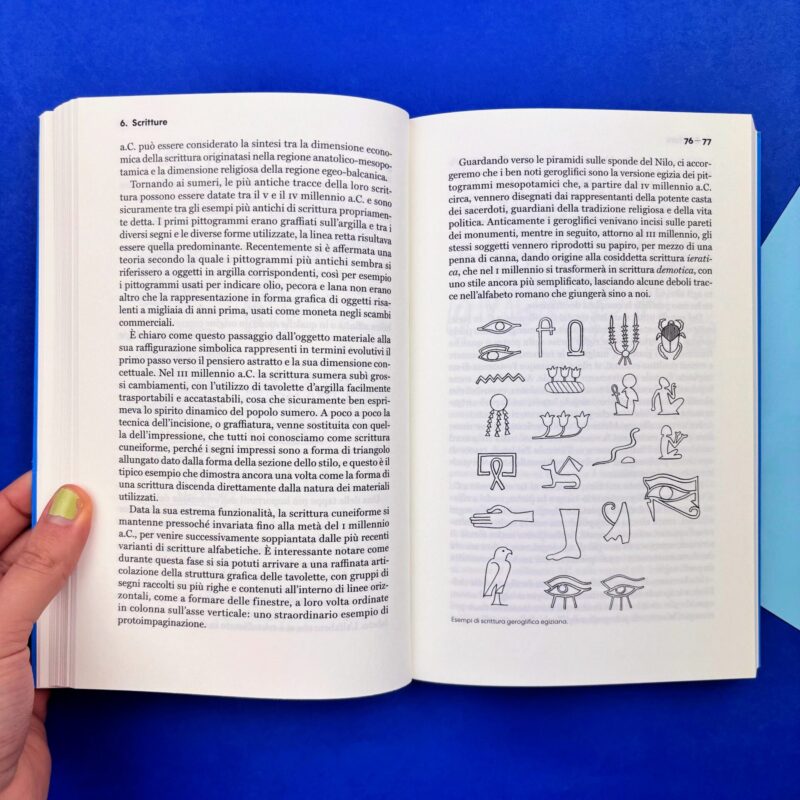 6. Scritture
a.C. può essere considerato la sintesi tra la dimensione econo-
mica della scrittura originatasi nella regione anatolico-mesopo-
tamica e la dimensione religiosa della regione egeo-balcanica.
Tornando ai sumeri, le più antiche tracce della loro scrit-
tura possono essere datate tra il V e il IV millennio a.C. e sono
sicuramente tra gli esempi più antichi di scrittura propriamen-
te detta. I primi pittogrammi erano graffiati sull'argilla e tra i
diversi segni e le diverse forme utilizzate, la linea retta risultava
essere quella predominante. Recentemente si è affermata una
teoria secondo la quale i pittogrammi più antichi sembra si
riferissero a oggetti in argilla corrispondenti, così per esempio
i pittogrammi usati per indicare olio, pecora e lana non erano
altro che la rappresentazione in forma grafica di oggetti risa-
lenti a migliaia di anni prima, usati come moneta negli scambi
commerciali.
È chiaro come questo passaggio dall'oggetto materiale alla
sua raffigurazione simbolica rappresenti in termini evolutivi il
primo passo verso il pensiero astratto e la sua dimensione con-
cettuale. Nel III millennio a.C. la scrittura sumera subì gros-
si cambiamenti, con l'utilizzo di tavolette d'argilla facilmente
trasportabili e accatastabili, cosa che sicuramente ben espri-
meva lo spirito dinamico del popolo sumero. A poco a poco la
tecnica dell'incisione, o graffiatura, venne sostituita con quel-
la dell'impressione, che tutti noi conosciamo come scrittura
cuneiforme, perché i segni impressi sono a forma di triangolo
allungato dato dalla forma della sezione dello stilo, e questo è il
tipico esempio che dimostra ancora una volta come la forma di
una scrittura discenda direttamente dalla natura dei materiali
utilizzati.
Data la sua estrema funzionalità, la scrittura cuneiforme si
mantenne pressoché invariata fino alla metà del I millennio
a.C., per venire successivamente soppiantata dalle più recenti
varianti di scritture alfabetiche. È interessante notare come
durante questa fase si sia potuti arrivare a una raffinata arti-
colazione della struttura grafica delle tavolette, con gruppi di
segni raccolti su più righe e contenuti all'interno di linee oriz-
zontali, come a formare delle finestre, a loro volta ordinate
in colonna sull'asse verticale: uno straordinario esempio di
protoimpaginazione.
76–77
Guardando verso le piramidi sulle sponde del Nilo, ci accor-
geremo che i ben noti geroglifici sono la versione egizia dei pit-
togrammi mesopotamici che, a partire dal IV millennio a.C.
circa, vennero disegnati dai rappresentanti della potente casta
dei sacerdoti, guardiani della tradizione religiosa e della vita
politica. Anticamente i geroglifici venivano incisi sulle pareti
dei monumenti, mentre in seguito, attorno al III millennio, gli
stessi soggetti vennero riprodotti su papiro, per mezzo di una
penna di canna, dando origine alla cosiddetta scrittura ierati-
ca, che nel I millennio si trasformerà in scrittura demotica, con
uno stile ancora più semplificato, lasciando alcune deboli trac-
ce nell'alfabeto romano che giungerà sino a noi.
Esempi di scrittura geroglifica egiziana.